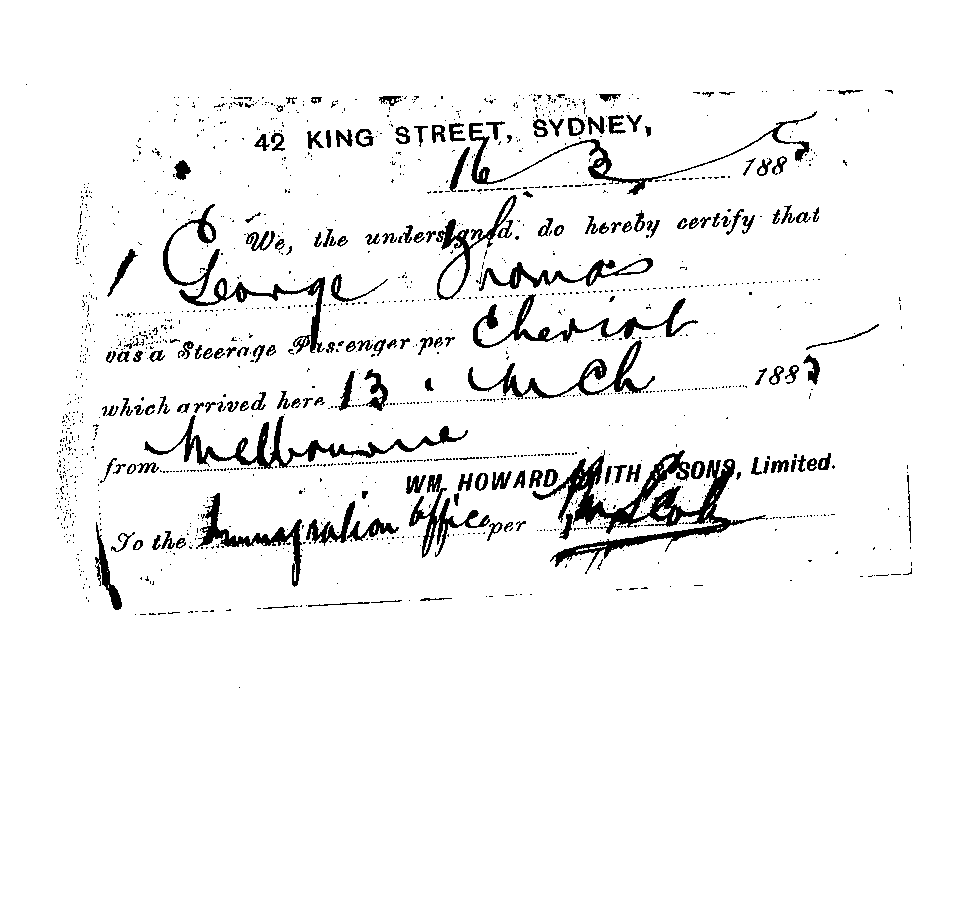 42 KING STREET, SYDNEY,
16 3 1885
We, the undersigned. do hereby certify that
George Thomas
was a Steerage Passenger per Cheviot
which arrived here 13 . Mch 1885
from Melbourne
WM. HOWARD SMITH & SONS, Limited.
To the Immigration Office per